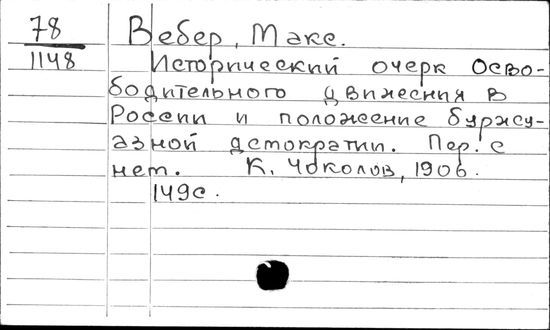 78 Вебер, Макс.
1148 Исторический очерк Осво-
бодительного движения в
России и положение буржу-
азной демократии. Пер. с
нем. К. Чоколов, 1906.
149с.